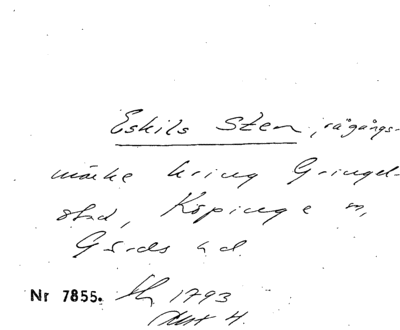 Eskils Sten, rågångs-
märke kring Gringel-
stad, Köpinge sn,
Gärds hd.
Nr 7855. 1793
Akt 4.